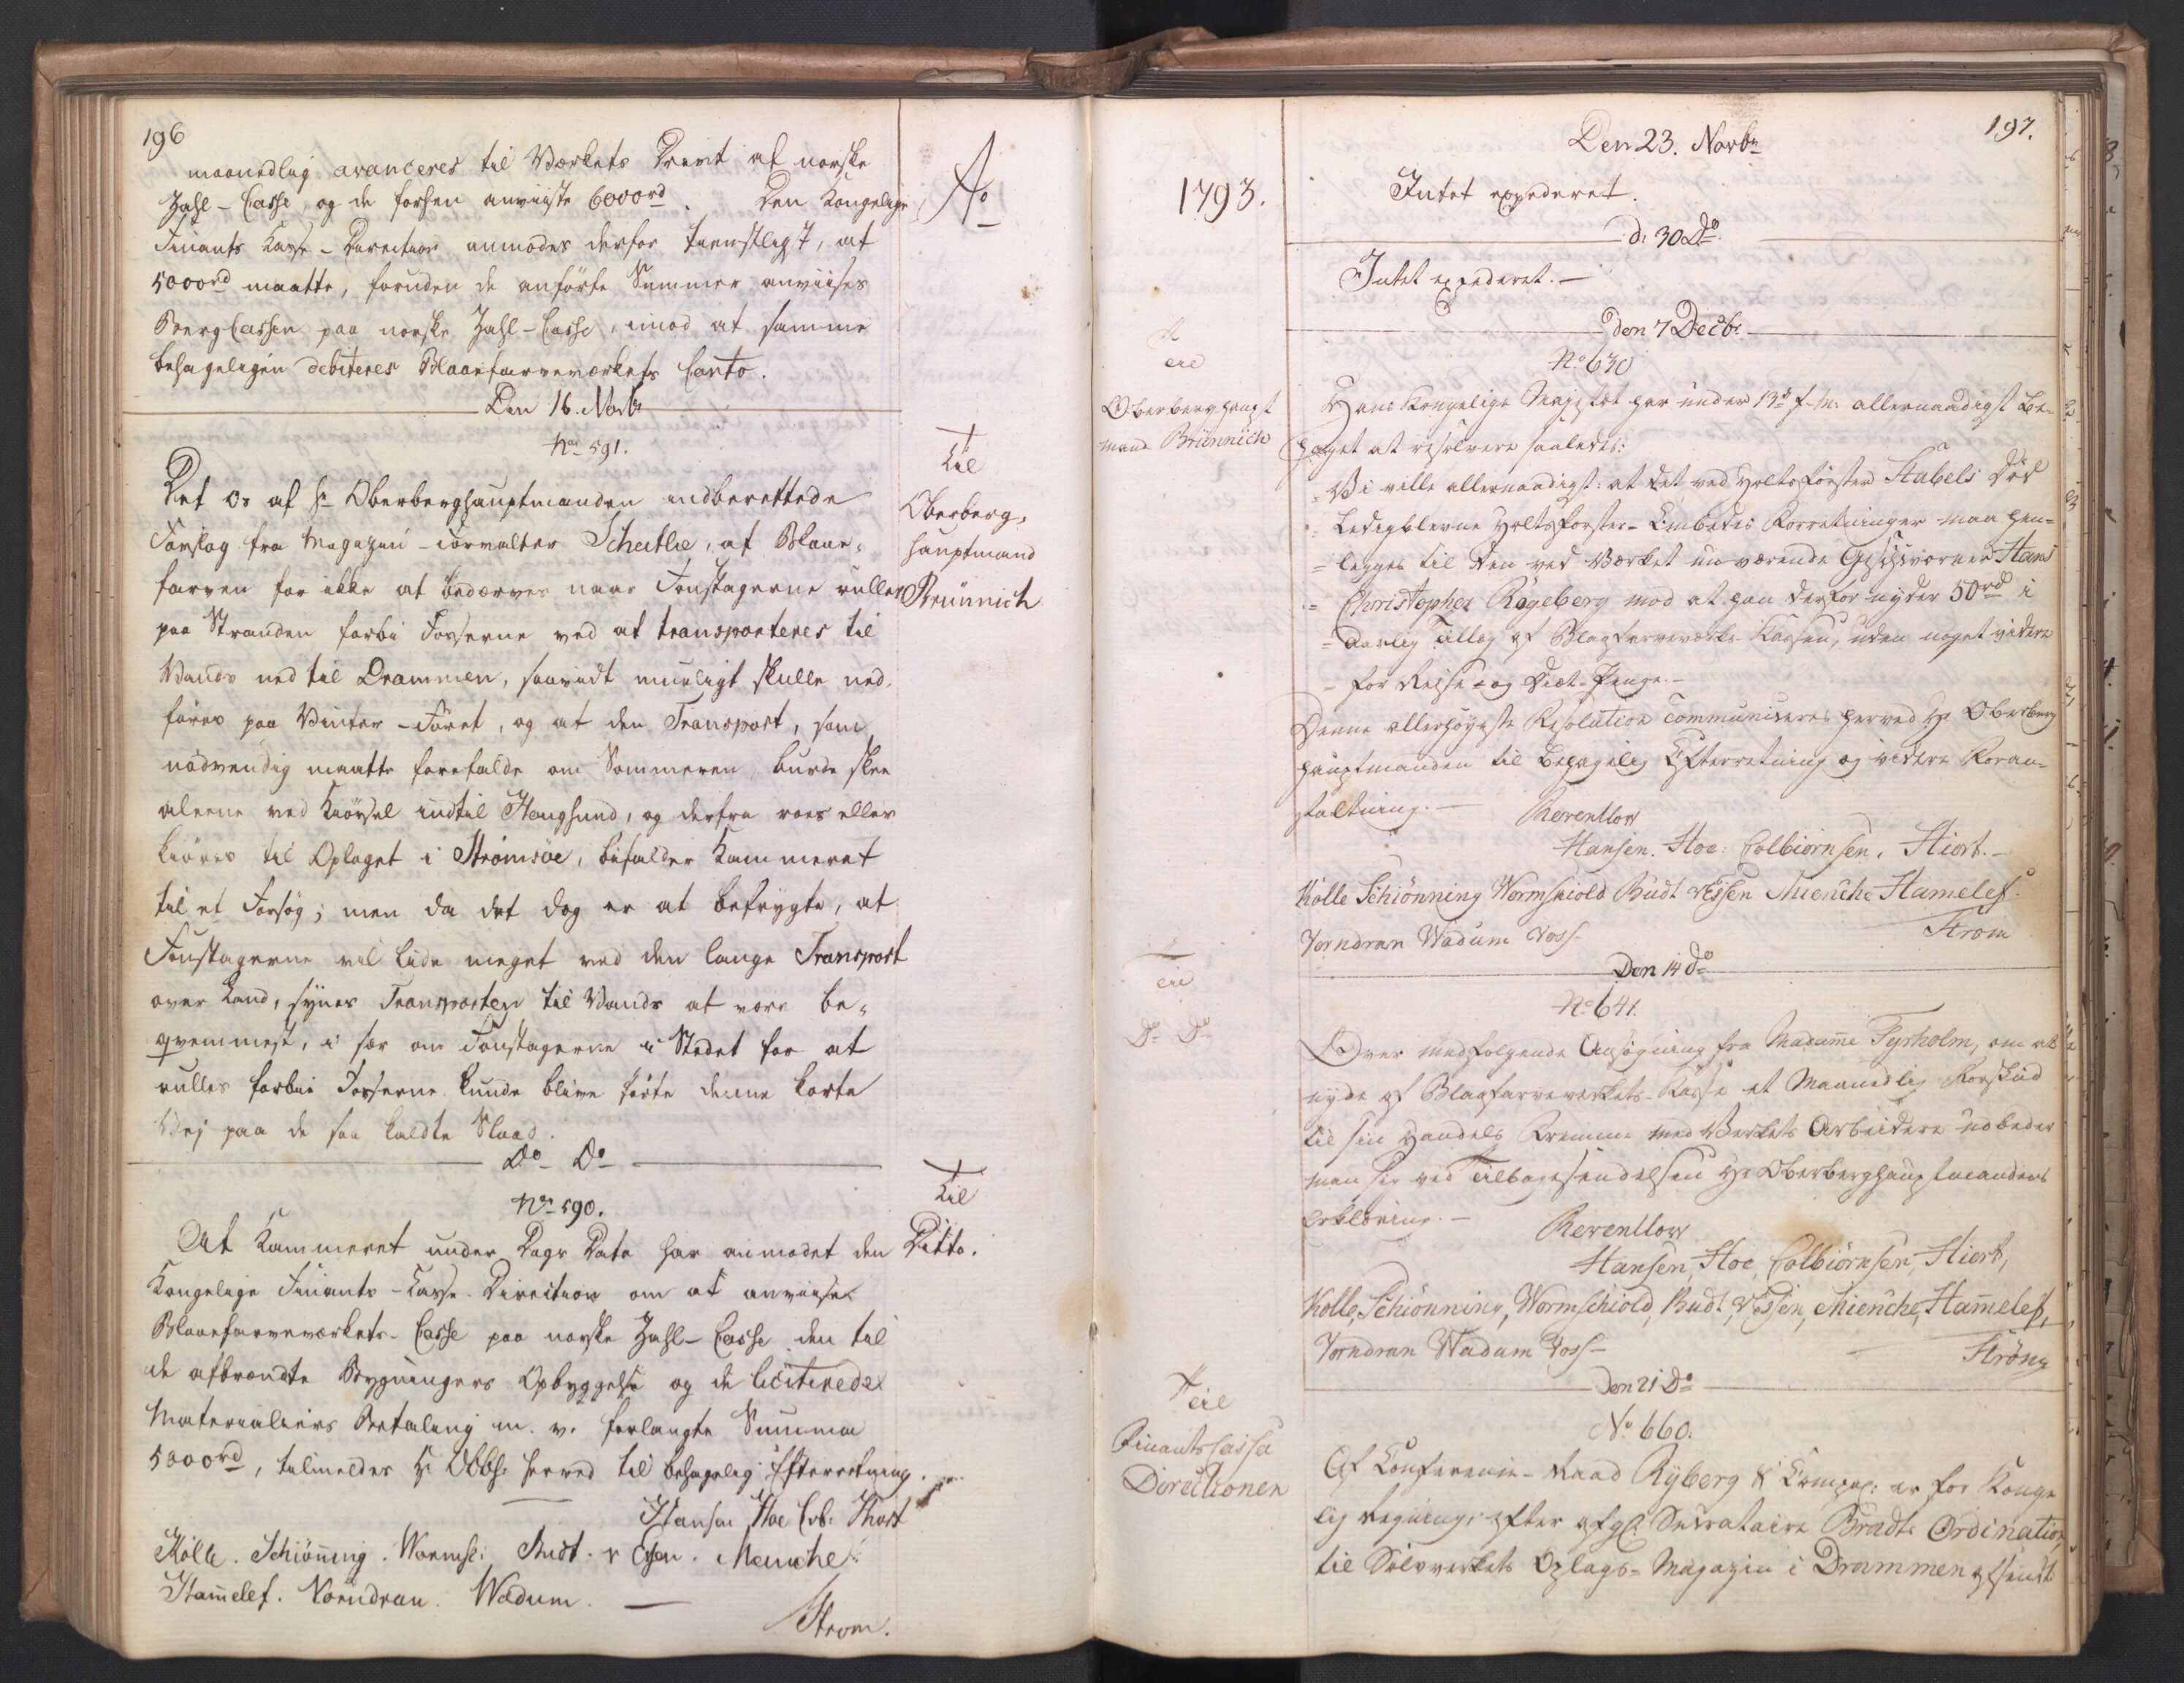 196
maanedlig avanceres til Værkets Drivt af norske
Zahl-Casse, og de forhen anviiste 6000rd. Den Kongelige
Finants Casse-Direction anmodes derfor tienstligst, at
5000rd maatte, foruden de anførte Summer anviises
BergCassen paa norske Zahl-Casse, imod at samme
behageligen debiteres Blaafarveværkets Conto.
Den 16. Novbr
No 591.
Det os af Hr Oberberghauptmanden indberettede
Forslag fra Magazin-Forvalter Scheitlie, at Blaae-
farven for ikke at bedærves naar Foustagerne rulles
paa Stranden forbi Fosserne ved at transporteres til
Vands ned til Drammen, saavidt mueligt skulle ned-
føres paa Vinter-Føret, og at den Transport, som
nødvendig maatte forefalde om Sommeren, burde skee
aleene ved Kiørsel indtil Hougsund, og derfra roes eller
kiøres til Oplaget i Strømsöe, bifalder Kammeret
til et Forsøg; men da det dog er at befrygte, at
Foustagerne vil lide meget ved den lange Transport
over Land, synes Transporten til Vands at være be-
qvemmest, i sær om Foustagerne i Stedet for at
rulles forbi Fosserne kunde blive kiörte denne korte
Vej paa de saa kaldte Slaad.
Do Do
No 590.
At Kammeret under Dags Dato har anmodet den
Kongelige Finants-Casse-Direction om at anviise
Blaaefarveværkets-Casse paa norske Zahl-Casse den til
de afbrændte Bygningers Opbyggelse og de liciterede
Materialiers Betaling m. v. forlangte Summa
5000rd, tilmeldes Hr Obbh: herved til behagelig Efterretning.
Hansen Hoe Colb: Hiort
Kølle. Schiönnig. Wormsk: Budt. v Essen. Meinche
Hamelef. Vorndran. Wadum.
Strøm.
Ao
Til
Oberberg-
hauptmand
Brünnich
Til
Ditto.
1793.
Til
Oberberghaupt
mand Brünnich
Til
Do Do
Til
FinantsCasse
Directionen
197.
Den 23. Novbr
Intet expederet.
d. 30 Do
Intet expederet.
Den 7 Decbr.
No 630
Hans Kongelige Majestæt har under 13de f. M. allernaadigst be-
haget at resolvere saaledes:
= Vi ville allernaadigst: at det ved Holtzförster Stabels Død
= Ledigblevne Holtzforster-Embedes Forretninger maa hen-
= legges til den ved Værket nu værende Geschworner Hans
= Christopher Rögeberg mod at han derfor nyder 50rd i
= aarlig Tillæg af Blaafarveværks-Kassen, uden noget videre
= for Reise- og Diæt-Penge.
Denne allerhøyeste Resolution communiceres herved Hr Oberberg
hauptmanden til behagelig Efterretning og videre Foran-
staltning.
Reventlow
Hansen. Hoe. Colbiörnsen. Hiort.
Kölle Schiönning Wormskiold Budt v Essen Mienche Hamelef.
Vorndran Wadum Voss
Strøm
Den 14 do
No 641.
Over medfølgende Ansøgning fra Madame Tyrholm, om at
nyde af Blaafarveverkets-Kasse et Maanedlig Forskud
til sin Handels Fremme med Verkets Arbeidere udbeder
man sig ved Tilbagesendelsen Hr Oberberghauptmandens
Erklæring.
Reventlow
Hansen, Hoe, Colbiörnsen, Hiort,
Kölle, Schiönning, Wormschiold, Budt, v Essen, Mienche, Hamelef,
Vorndran Wadum Voss
Ström
Den 21 Do
No 660.
Af Conference-Raad Ryberg & Compag: er for Konge
lig Regning, efter afg. Secretaire Bradts Ordination,
til Sølvverkets Oplags-Magazin i Drammen afsendt